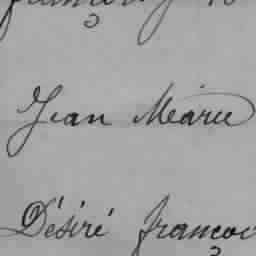 Jean Marie
Désiré françoi